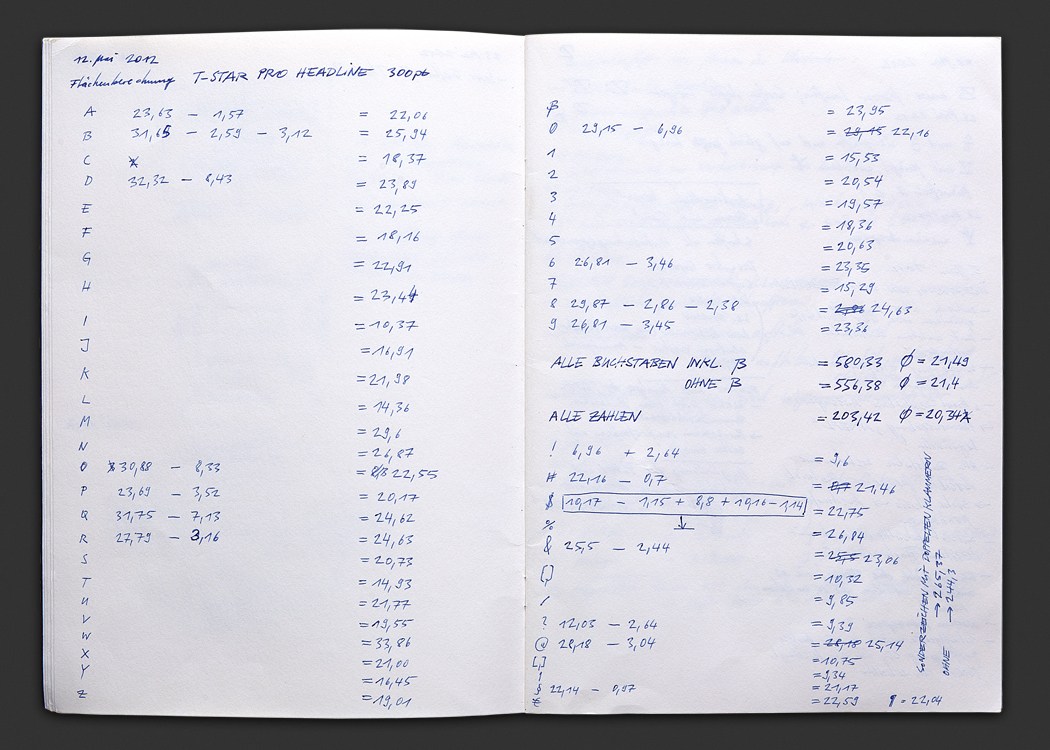 12. Mai 2012
Flächenberechnung T-STAR PRO HEADLINE 300pt
A 23,63 – 1,57 = 22,06
B 31,65 – 2,59 – 3,12 = 25,94
C = 18,37
D 32,32 – 8,43 = 23,89
E = 22,25
F = 18,16
G = 22,91
H = 23,44
I = 10,37
J = 16,91
K = 21,98
L = 14,36
M = 29,6
N = 26,87
O 30,88 – 8,33 = 22,55
P 23,69 – 3,52 = 20,17
Q 31,75 – 7,13 = 24,62
R 27,79 – 3,16 = 24,63
S = 20,73
T = 14,93
U = 21,77
V = 19,55
W = 33,86
X = 21,00
Y = 16,45
Z = 19,01
ß = 23,95
0 29,15 – 6,96 = 29,15 22,16
1 = 15,53
2 = 20,54
3 = 19,57
4 = 18,36
5 = 20,63
6 26,81 – 3,46 = 23,35
7 = 15,29
8 29,87 – 2,86 – 2,38 = 2,86 24,63
9 26,81 – 3,45 = 23,36
ALLE BUCHSTABEN INKL. ß = 580,33 Ø = 21,49
OHNE ß = 556,38 Ø = 21,4
ALLE ZAHLEN = 203,42 Ø = 20,34
! 6,96 + 2,64 = 9,6
# 22,16 – 0,7 = 21,46
$ 10,17 – 1,15 + 8,8 + 10,16 – 1,14 = 22,75
% = 26,84
& 25,5 – 2,44 = 25,5 23,06
() = 10,32
/ = 9,85
? 12,03 – 2,64 = 9,39
@ 28,18 – 3,04 = 28,18 25,14
[,] = 10,75
= 9,34
§ 22,14 – 0,97 = 21,17
= 22,59 = 22,04
SONDERZEICHEN MIT DOPPELTEN KLAMMERN → 265,37
OHNE → 244,3